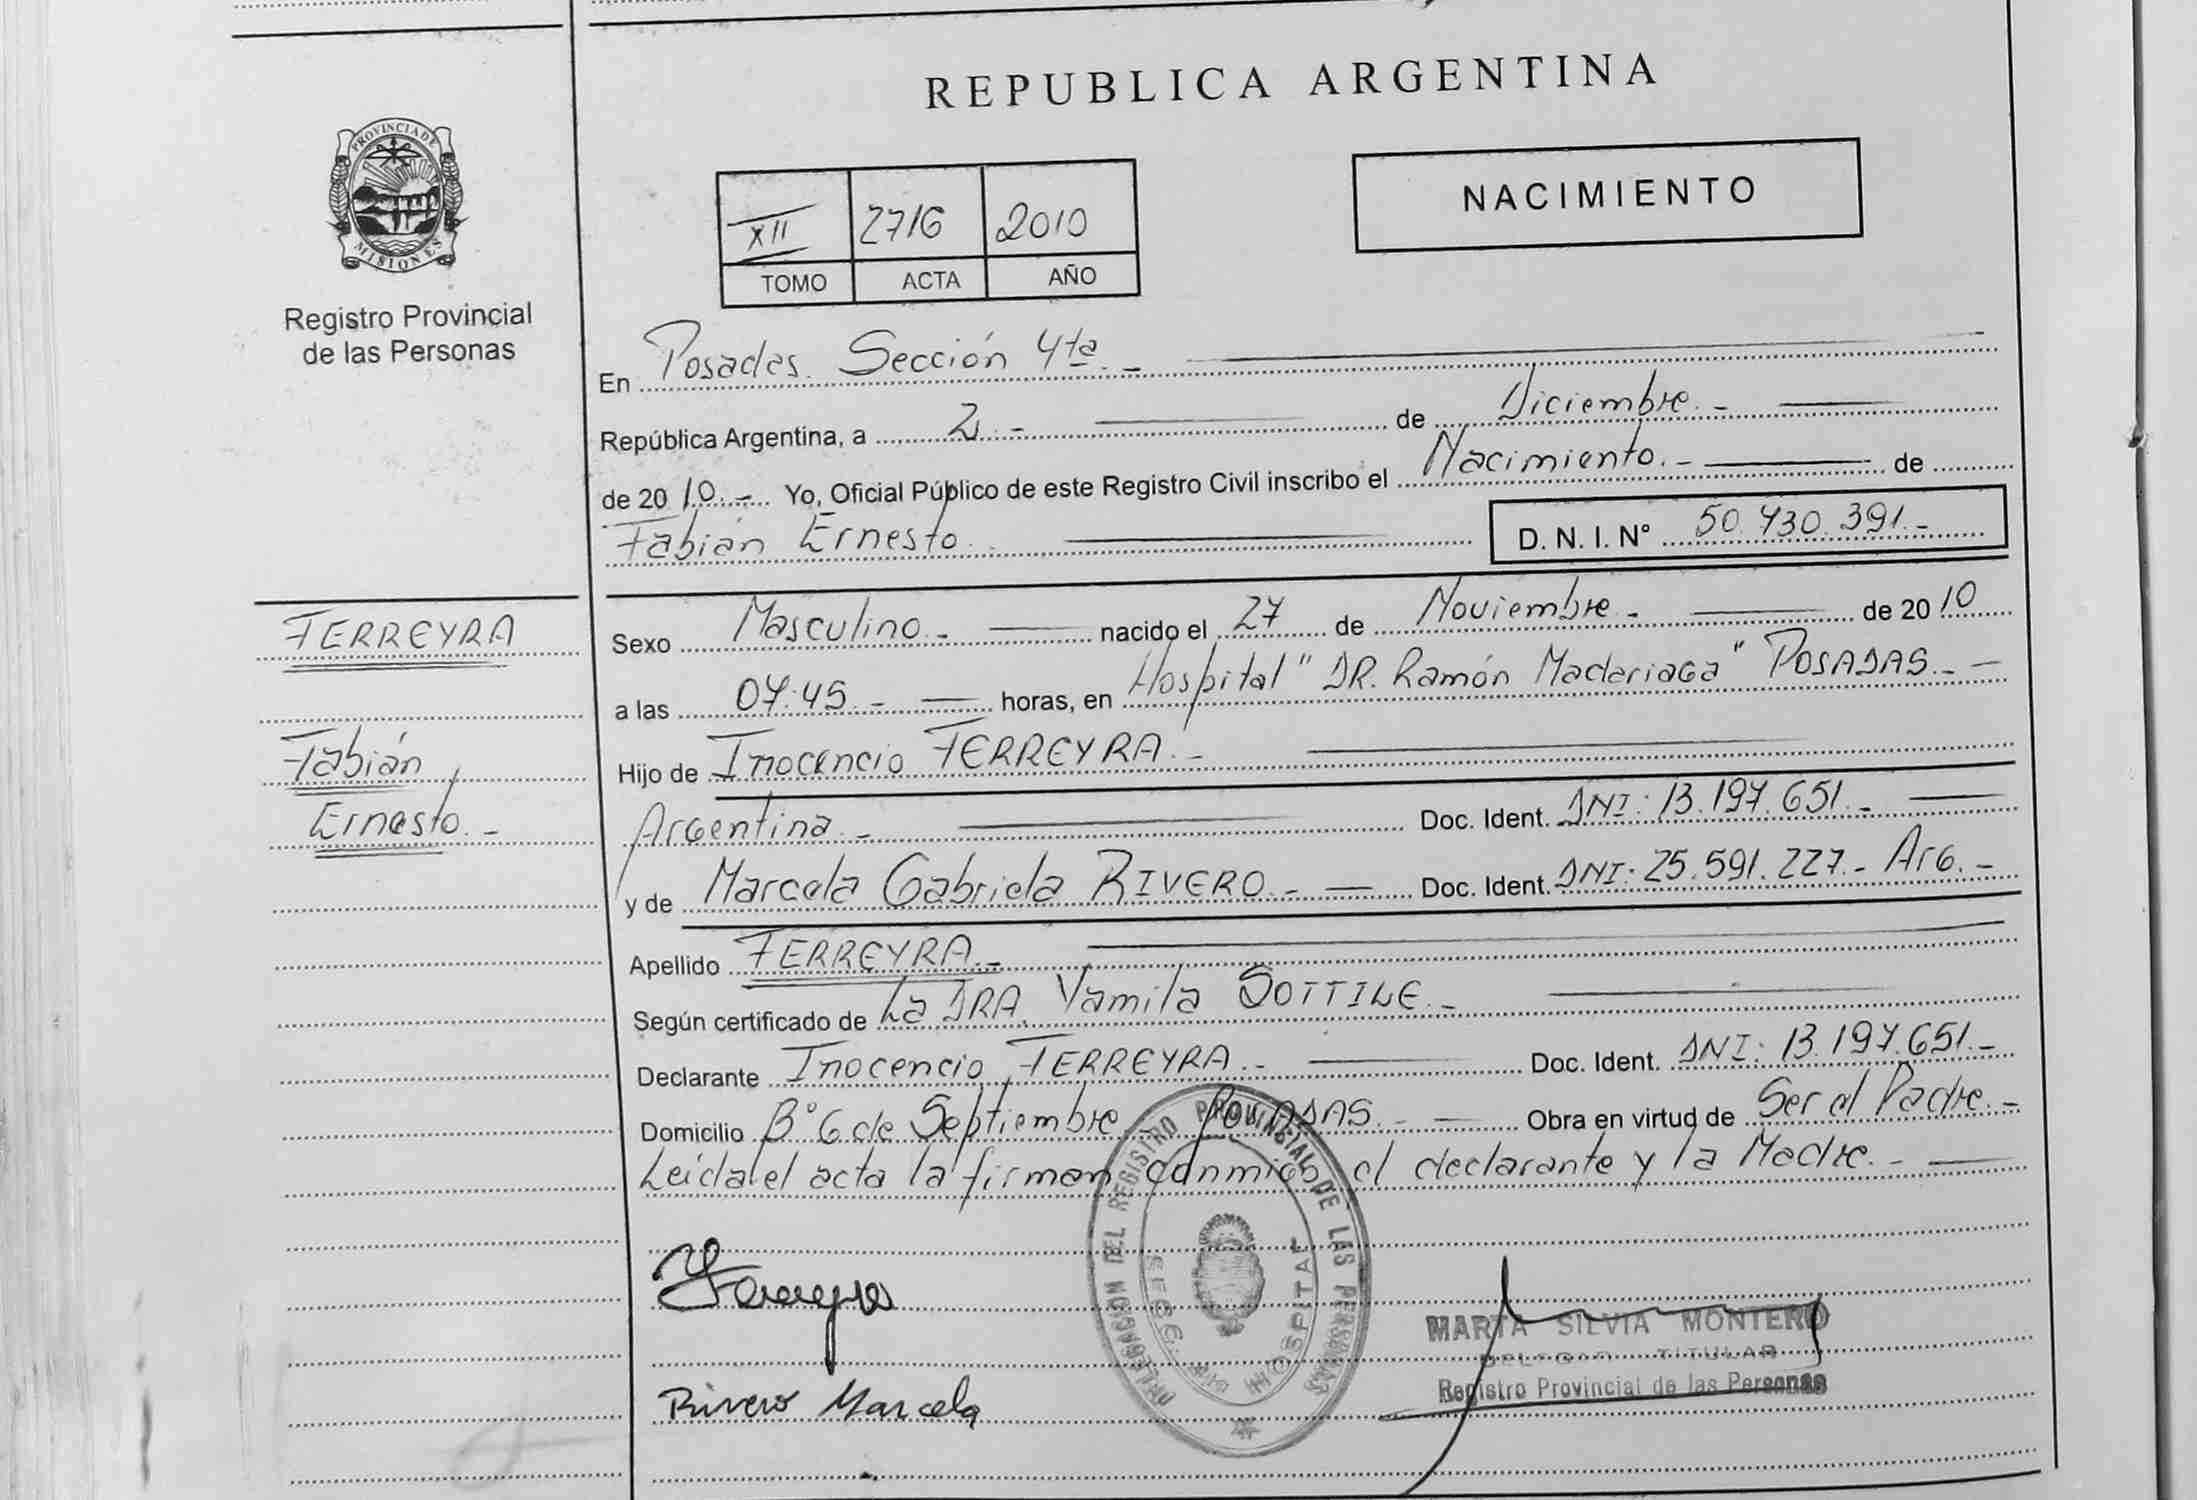 REPUBLICA ARGENTINA
PROVINCIA DE
MISIONES
Registro Provincial
de las Personas
NACIMIENTO
XII 2716 2010
TOMO ACTA AÑO
En Posadas. Sección 4ta. -
República Argentina, a 2. - de Diciembre. -
de 2010. - Yo, Oficial Público de este Registro Civil inscribo el Nacimiento. - de
Fabián Ernesto.
D. N. I. Nº 50.430.391.-
FERREYRA
Fabián
Ernesto. -
Sexo Masculino - nacido el 27 de Noviembre - de 2010
a las 07:45. - horas, en Hospital "DR. Ramón Madariaga" POSADAS. -
Hijo de Inocencio FERREYRA. -
Argentina. - Doc. Ident. DNI: 13.197.651. -
y de Marcela Gabriela RIVERO. - Doc. Ident. DNI: 25.591.227. - Arg. -
Apellido FERREYRA. -
Según certificado de La DRA. Yamila SOTTILE. -
Declarante Inocencio FERREYRA. - Doc. Ident. DNI: 13.197.651. -
Domicilio Bº 6 de Septiembre POSADAS. - Obra en virtud de Ser el Padre. -
Leída el acta la firman conmigo el declarante y la Madre. -
DELEGACION DEL REGISTRO PROVINCIAL DE LAS PERSONAS
SECC. 4ta HOSPITAL
Ferreyra
MARTA SILVIA MONTERO
DELEGAD TITULAR
Registro Provincial de las Personas
Rivero Marcela